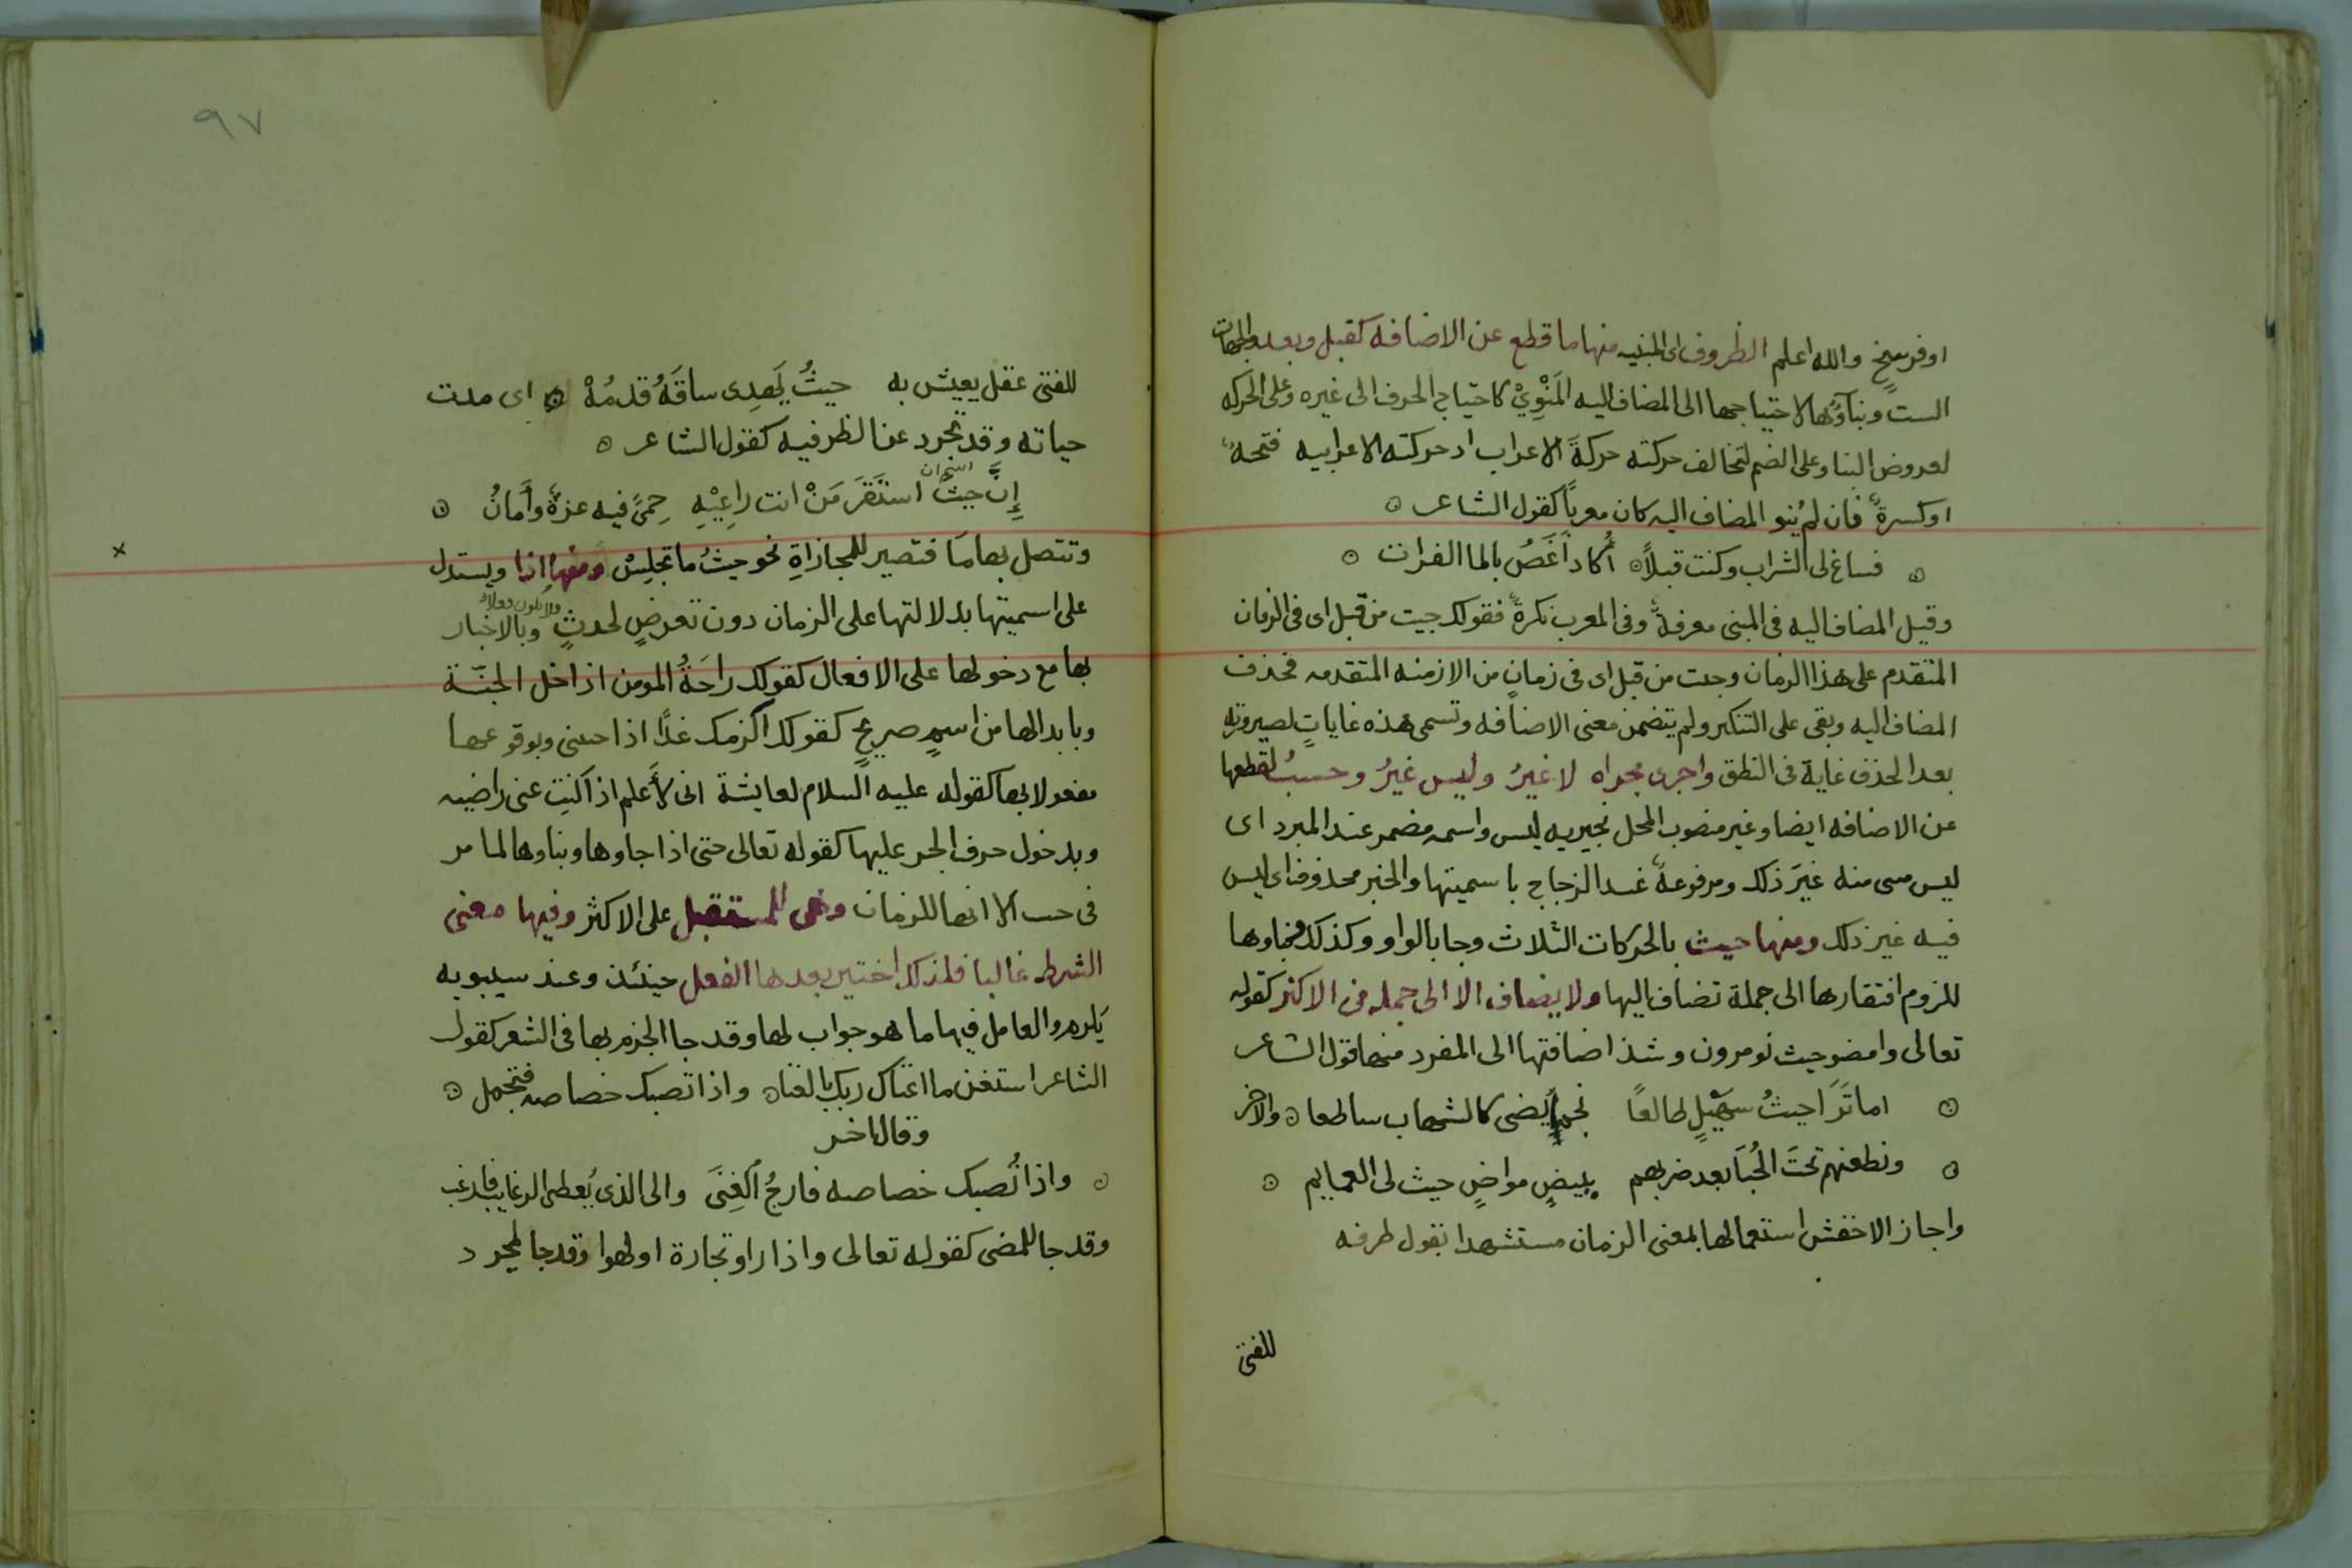 او فرسخ والله اعلم الظروف اى المبنيه منها ما قطع عن الاضافه كقبل وبعد والجهات
الست وبناؤها لاحتياجها الى المضاف اليه المَنْوِيْ كاحتياج الحرف الى غيره وعلى الحركه
لعروض البنا وعلى الضم لتخالف حركته حركةَ الاعراب اد حركته الاعرابيه فتحهٌ
او كسرةٌ فان لم يُنو المضاف اليه كان معرباً كقول الشاعر
فساغ لى الشراب وكنت قبلاً أكاد أَغَصُ بالما الفرات
وقيل المضاف اليه فى المبنى معرفةٌ وفى المعرب نكرةٌ فقولك جيت من قبل اى فى الزمان
المتقدم على هذا الزمان وجت من قبل اى فى زمانٍ من الازمنه المتقدمه فحذف
المضاف اليه وبقى على التنكير ولم يتضمن معنى الاضافه وتسمى هذه غاياتٍ لصيرورته
بعد الحذف غاية فى النطق واجرى مجراه لا غيرُ وليس غيرُ وحسبُ لقطعها
عن الاضافه ايضا وغير منصوب المحل بخبريه ليس واسمه مضمر عند المبرد اى
ليس مسى منه غيرَ ذلك ومرفوعةٌ عند الزجاج باسميتها والخبر محذوف اى ليس
فيه غير ذلك ومنها حيث بالحركات الثلاث وجا بالواو وكذلك فبناوها
للزوم افتقارها الى جملة تضاف اليها ولا يضاف الا الى جمله فى الاكثر كقوله
تعالى وامضو حيث تومرون وشذ اضافتها الى المفرد منها قول الشاعر
اما تَرَا حيثُ سهيلٍ طالعًا نجم يضى كالشهاب ساطعا والاخر
ونطعنهم تحتَ الحُبَا بعد ضربهم ببيضٍ مواضٍ حيث لى العمايم
واجاز الاخفش استعمالها بمعنى الزمان مستشهدا بقول طرفه
للفتى
٩٧
للفتى عقل يعيش به حيثُ يَهدِى ساقَهُ قدمُهْ اى مدت
حياته وقد تجرد عن الظرفيه كقول الشاعر
اسم ان
إنَّ حيثَ استَقَرَ مَنْ انت راعِيْهِ حِمىً فيه عزةٌ وأَمانُ
وتتصل بها مَا فتصير للمجازاةِ نحو حيثُ ما تجلِسْ ومنها اذا ويستدل
على اسميتها بدلالتها على الزمان دون تعرضٍ لحدثٍ ولا تكون فعلا وبالاخبار
بها مع دخولها على الافعال كقولك راحَةُ المومن اذا دخل الجنّة
وبابدالها من اسمٍ صريحٍ كقولك اكرمك غدًا اذا جيتنى وبوقوعها
مفعولا بها كقوله عليه السلام لعايشة انى لأَعلم اذا كنتِ عنى راضيه
وبدخول حرف الجر عليها كقوله تعالى حتى اذا جاوها وبناوها لما مر
فى حيث الا انها للزمان وهى للمستقبل على الاكثر وفيها معنى
الشرط غالبا فلذلك اختير بعدها الفعل حينئذ وعند سيبويه
يلزم والعامل فيها ما هو جواب لها وقد جا الجزم بها فى الشعر كقول
الشاعر استغن ما اغناك ربك بالغناه واذا تصبك خصاصه فتجمل
وقال اخر
واذا تُصبك خصاصه فارجُ الغِنَى والى الذى يُعطى الرغايب فارغب
وقد جا للمضى كقوله تعالى واذا راو تجارة او لهوا وقد جا لمجرد